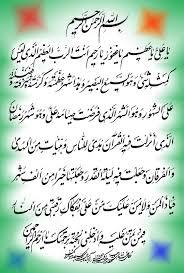 بسم الله الرحمن الرحیم
یا علی یا عظیم یا غفور یا رحیم انت الرب العظیم الذی لیس
کمثله شیء و هو السمیع البصیر و هذا شهر عظمته و کرمته و شرفته و فضلته
علی الشهور و هو الشهر الذی فرضت صیامه علی و هو شهر رمضان
الذی انزلت فیه القرآن هدی للناس و بینات من الهدی
و الفرقان و جعلت فیه لیلة القدر و جعلتها خیرا من الف شهر
فیا ذا المن و لا یمن علیک من علی بفکاک رقبتی من النار
فیمن تمن علیه و ادخلنی الجنة برحمتک یا ارحم الراحمین